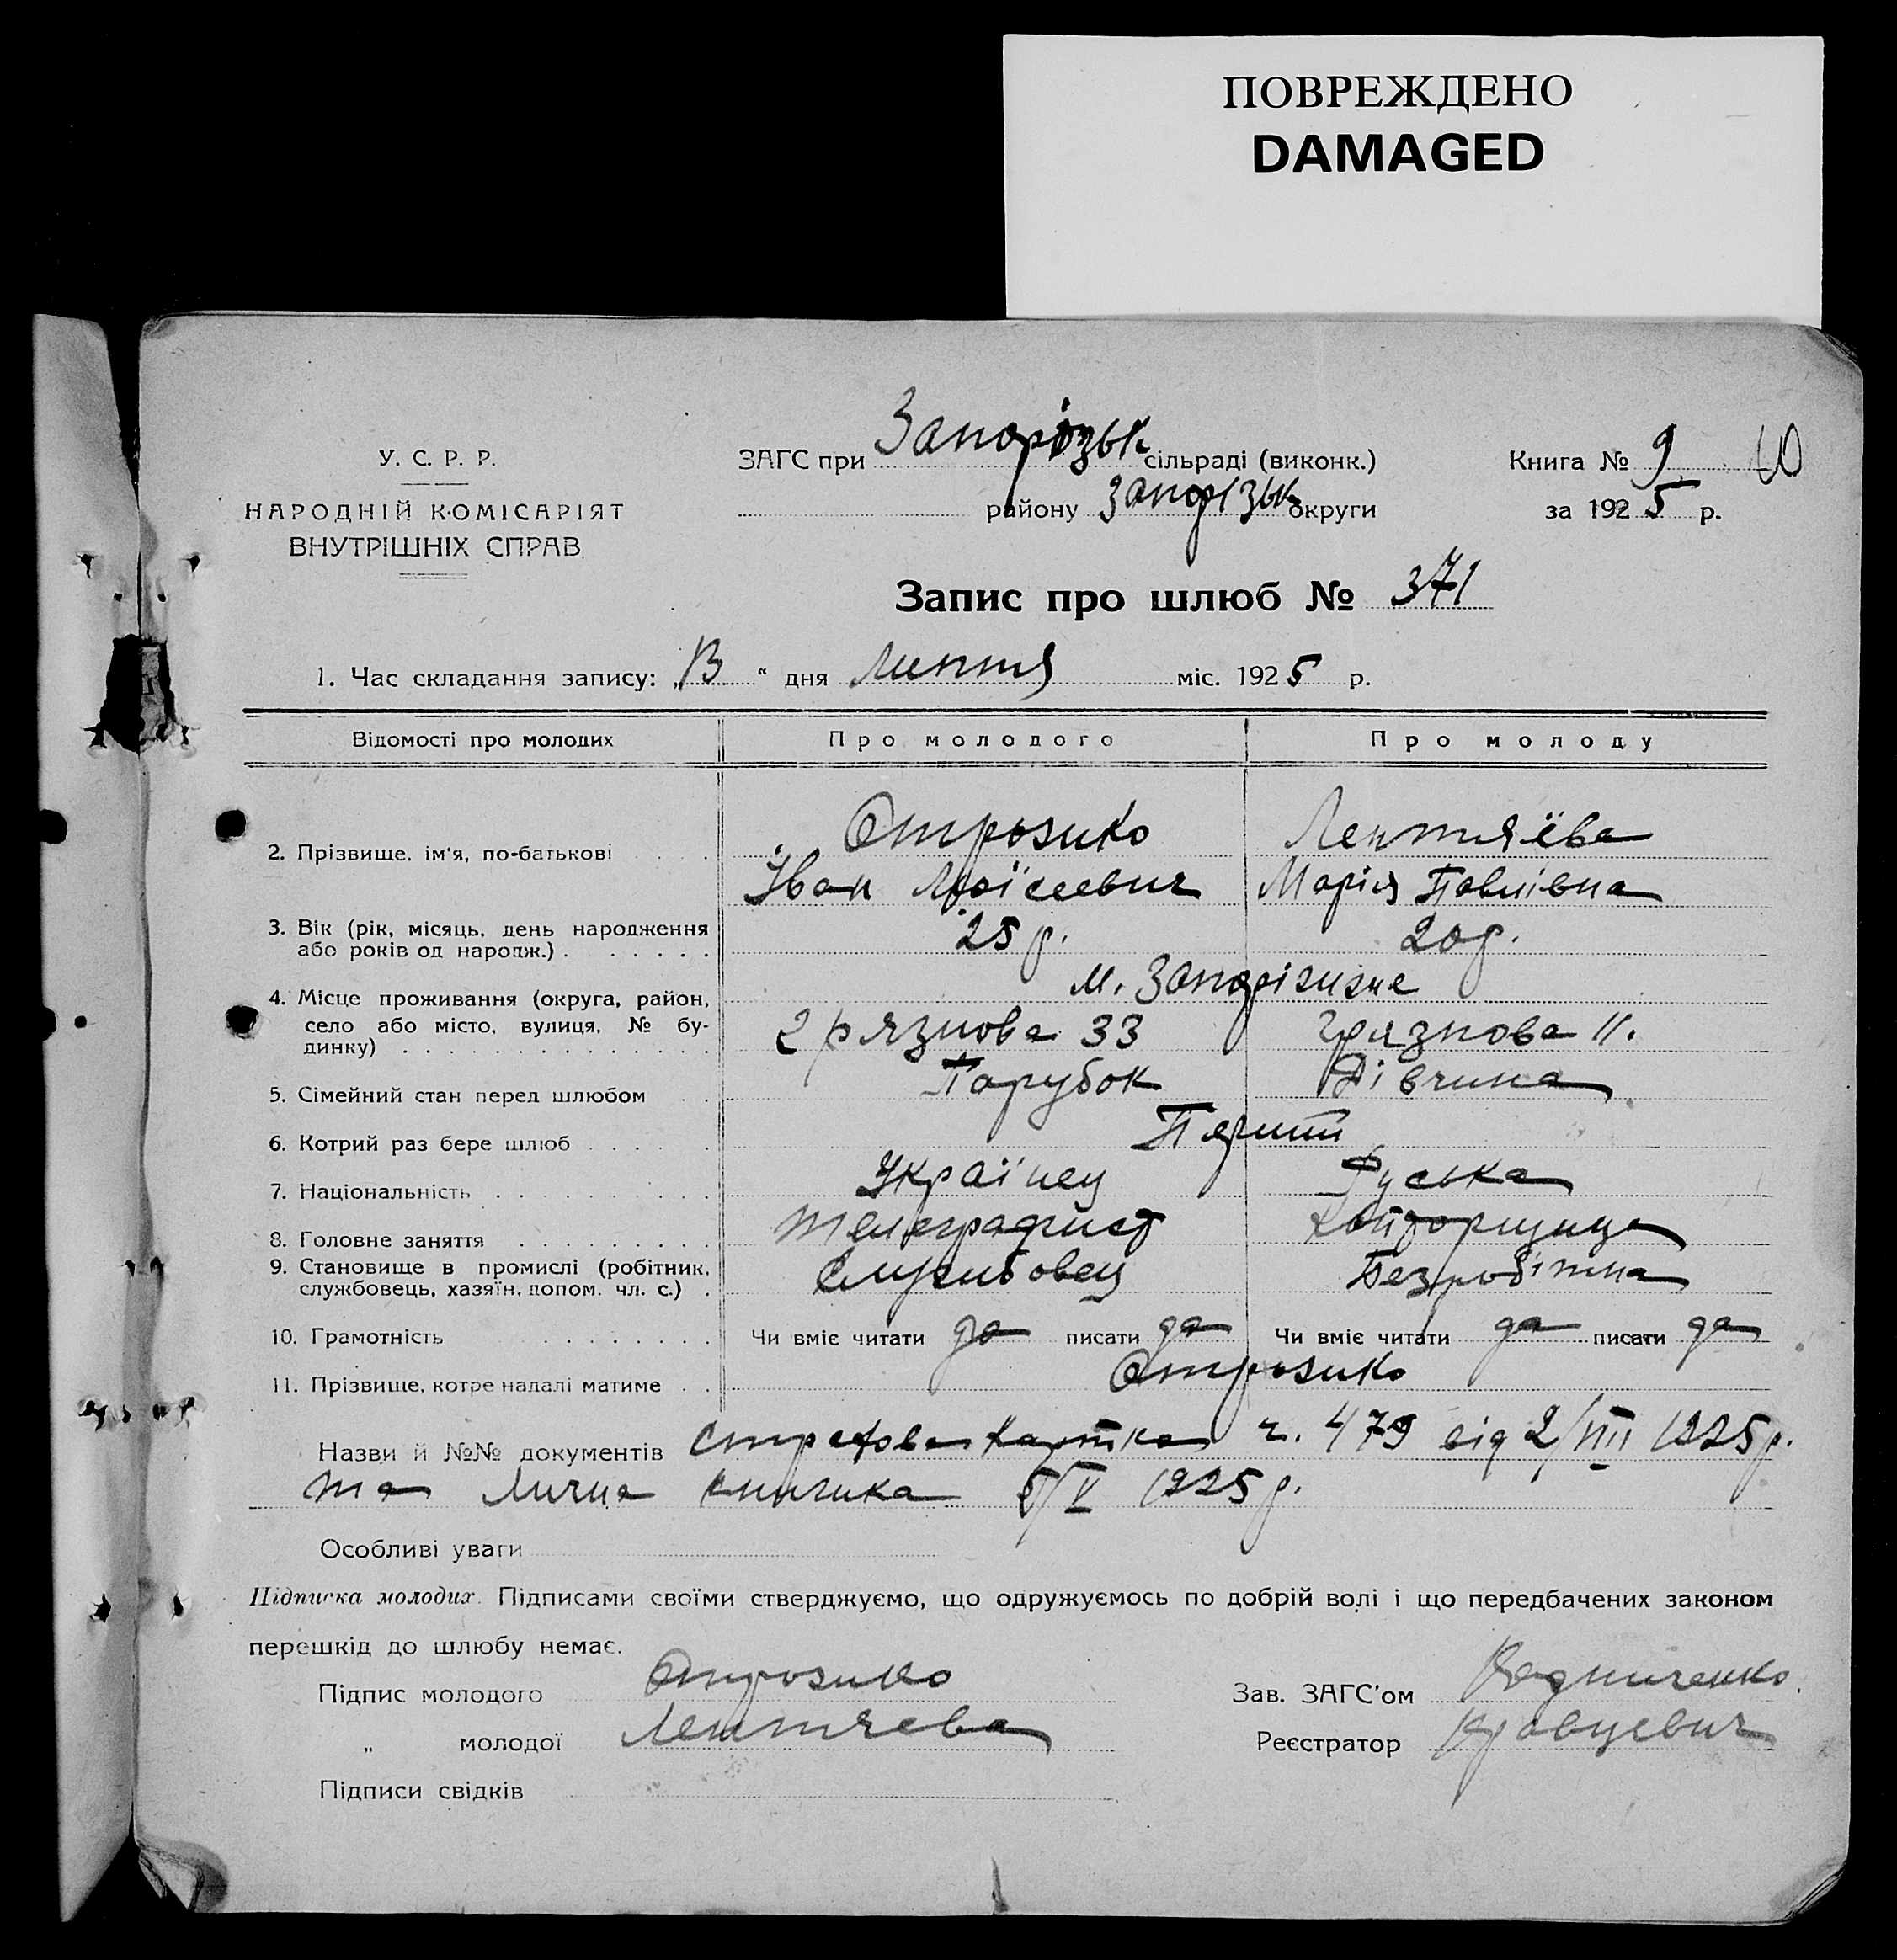 ПОВРЕЖДЕНО
DAMAGED
У. С. Р. Р.
НАРОДНІЙ КОМІСАРІЯТ
ВНУТРІШНІХ СПРАВ.
ЗАГС при Запорізьк сільраді (виконк.)
району Запорізьк округи
Книга № 9 10
за 1925 р.
Запис про шлюб № 371
1. Час складання запису: „13“ дня Липня міс. 1925 р.
Відомості про молодих Про молодого Про молоду
2. Прізвище, ім'я, по-батькові
Лентяєва
Іван Мойсеевич Марія Павлівна
3. Вік (рік, місяць, день народження
або років од народж.) 25 р. 20 р.
4. Місце проживання (округа, район,
село або місто, вулиця, № бу-
динку)
м. Запоріжжє
Грязнова 33 Грязнова 11.
5. Сімейний стан перед шлюбом Парубок Дівчина
6. Котрий раз бере шлюб Перший
7. Національність Українец Руська
8. Головне заняття телеграфист Конторщица
9. Становище в промислі (робітник,
службовець, хазяїн, допом. чл. с.) Службовец Безробітна
10. Грамотність Чи вміє читати да писати да Чи вміє читати да писати да
11. Прізвище, котре надалі матиме
Назви й №№ документів Страхова Картка ч. 479 від 2/VII 1925 р.
та Лична книжка 5/V 1925 р.
Особливі уваги
Підписка молодих. Підписами своїми стверджуємо, що одружуємось по добрій волі і що передбачених законом
перешкід до шлюбу немає.
Підпис молодого
„ молодої Лентяева
Підписи свідків
Зав. ЗАГС'ом
Реєстратор Кравцевич